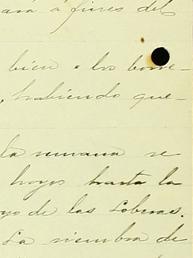 ará á fines del
bien a los borre-
, habiendo que-
ta semana se
hoyos hasta la
yo de las Lobinas.
La siembra de